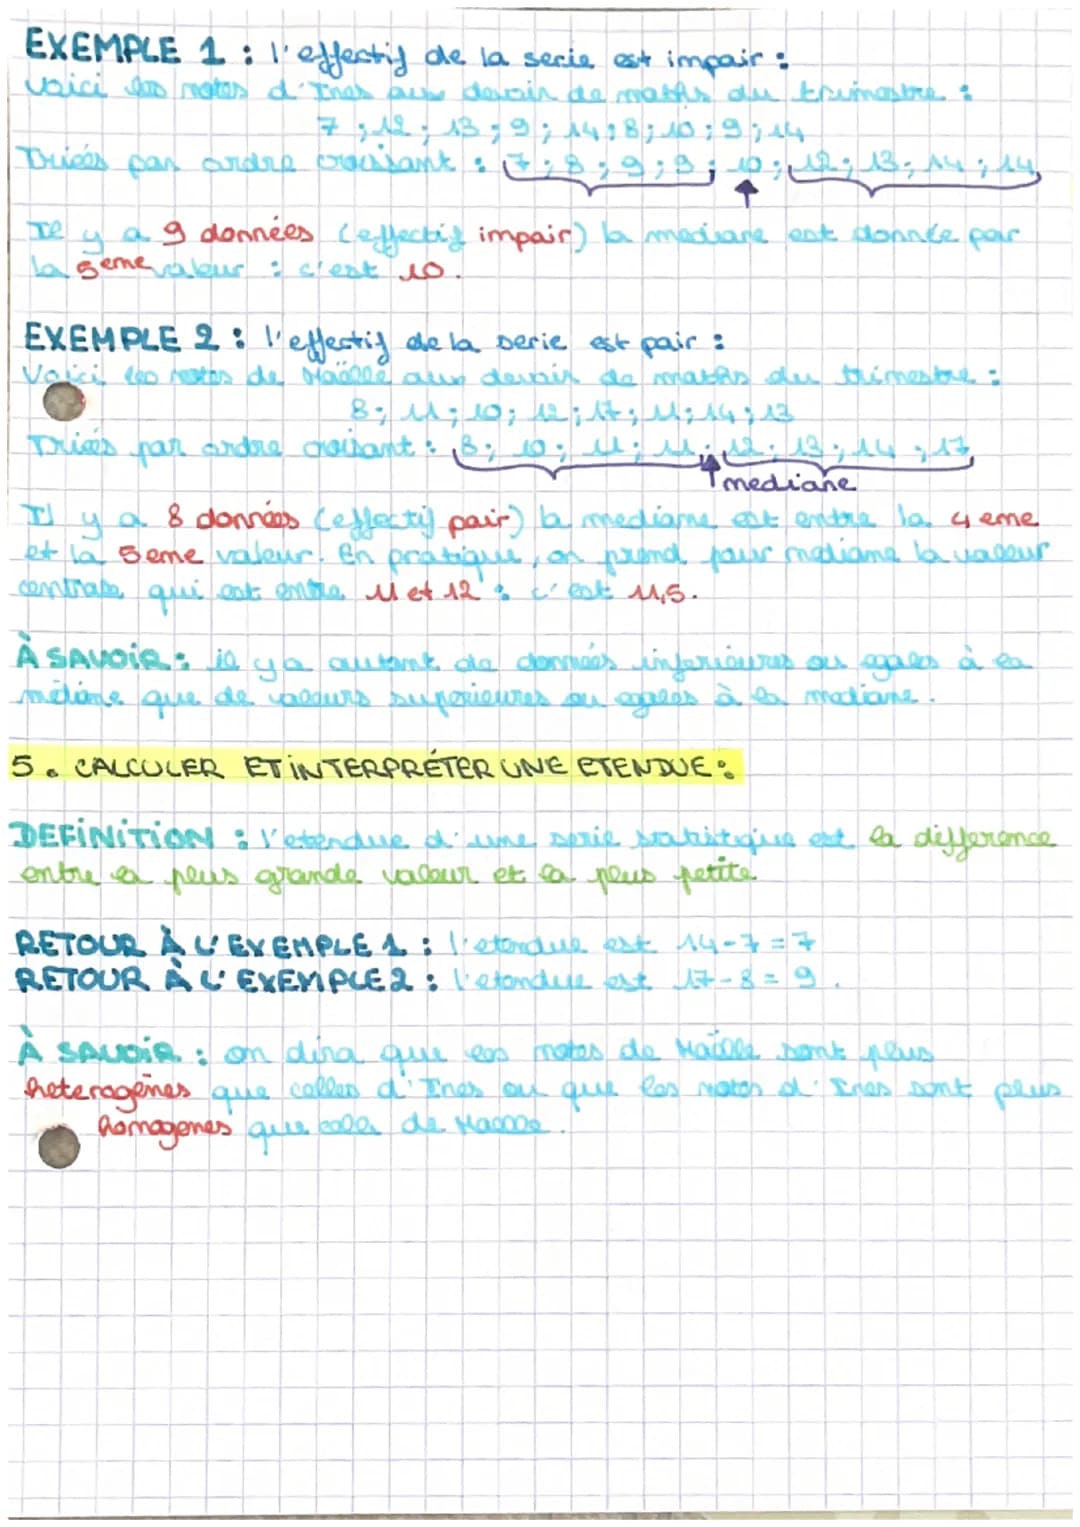 EXEMPLE 1 : l'effectif de la serie est impair :
Voici les notes d'Ines aux devoir de maths du trimestre :
7 ; 12 ; 13 ; 9 ; 14 ; 8 ; 10 ; 9 ; 14
Triées par ordre croissant : 7 ; 8 ; 9 ; 9 ; 10 ; 12 ; 13 ; 14 ; 14
Il y a 9 données (effectif impair) la mediane est donnée par
la 5eme valeur : c'est 10.
EXEMPLE 2 : l'effectif de la serie est pair :
Voici les notes de Maëlle aux devoir de maths du trimestre :
8 ; 11 ; 10 ; 12 ; 17 ; 11 ; 14 ; 13
Triées par ordre croisant : 8 ; 10 ; 11 ; 11 ; 12 ; 13 ; 14 ; 17
mediane
Il y a 8 données (effectif pair) la mediane est entre la 4eme
et la 5eme valeur. En pratique, on prend pour mediane la valeur
centrale qui est entre 11 et 12 : c'est 11,5.
À SAVOIR : il y a autant de données inferieures ou egales à la
médiane que de valeurs superieures ou egales à la mediane.
5. CALCULER ET INTERPRÉTER UNE ETENDUE :
DEFINITION : l'etendue d'une serie statistique est la difference
entre la plus grande valeur et la plus petite
RETOUR À L'EXEMPLE 1 : l'etendue est 14-7 = 7
RETOUR À L'EXEMPLE 2 : l'etendue est 17-8 = 9.
À SAVOIR : on dira que les notes de Maëlle sont plus
heterogènes que celles d'Ines ou que les notes d'Ines sont plus
homogenes que celle de Maelle.